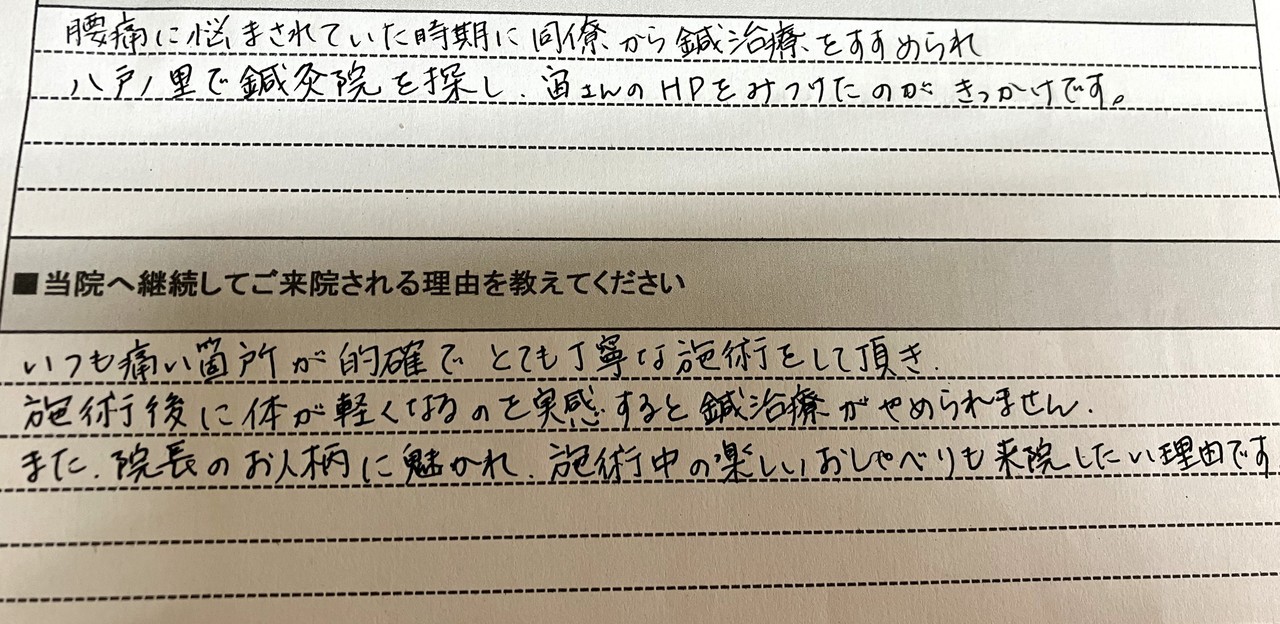 腰痛に悩まされていた時期に同僚から鍼治療をすすめられ
八戸ノ里で鍼灸院を探し、宙さんのHPをみつけたのがきっかけです。
■当院へ継続してご来院される理由を教えてください
いつも痛い箇所が的確でとても丁寧な施術をして頂き、
施術後に体が軽くなるのを実感すると鍼治療がやめられません。
また、院長のお人柄に魅かれ、施術中の楽しいおしゃべりも来院したい理由です